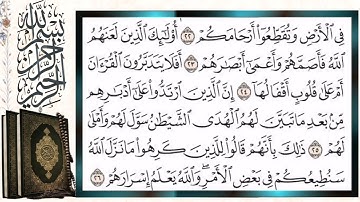 بسم الله الرحمن الرحيم
فِي الْأَرْضِ وَتُقَطِّعُوا أَرْحَامَكُمْ ﴿٢٢﴾ أُولَٰئِكَ الَّذِينَ لَعَنَهُمُ
اللَّهُ فَأَصَمَّهُمْ وَأَعْمَىٰ أَبْصَارَهُمْ ﴿٢٣﴾ أَفَلَا يَتَدَبَّرُونَ الْقُرْآنَ
أَمْ عَلَىٰ قُلُوبٍ أَقْفَالُهَا ﴿٢٤﴾ إِنَّ الَّذِينَ ارْتَدُّوا عَلَىٰ أَدْبَارِهِم
مِّن بَعْدِ مَا تَبَيَّنَ لَهُمُ الْهُدَى الشَّيْطَانُ سَوَّلَ لَهُمْ وَأَمْلَىٰ
لَهُمْ ﴿٢٥﴾ ذَٰلِكَ بِأَنَّهُمْ قَالُوا لِلَّذِينَ كَرِهُوا مَا نَزَّلَ اللَّهُ
سَنُطِيعُكُمْ فِي بَعْضِ الْأَمْرِ ۖ وَاللَّهُ يَعْلَمُ إِسْرَارَهُمْ ﴿٢٦﴾